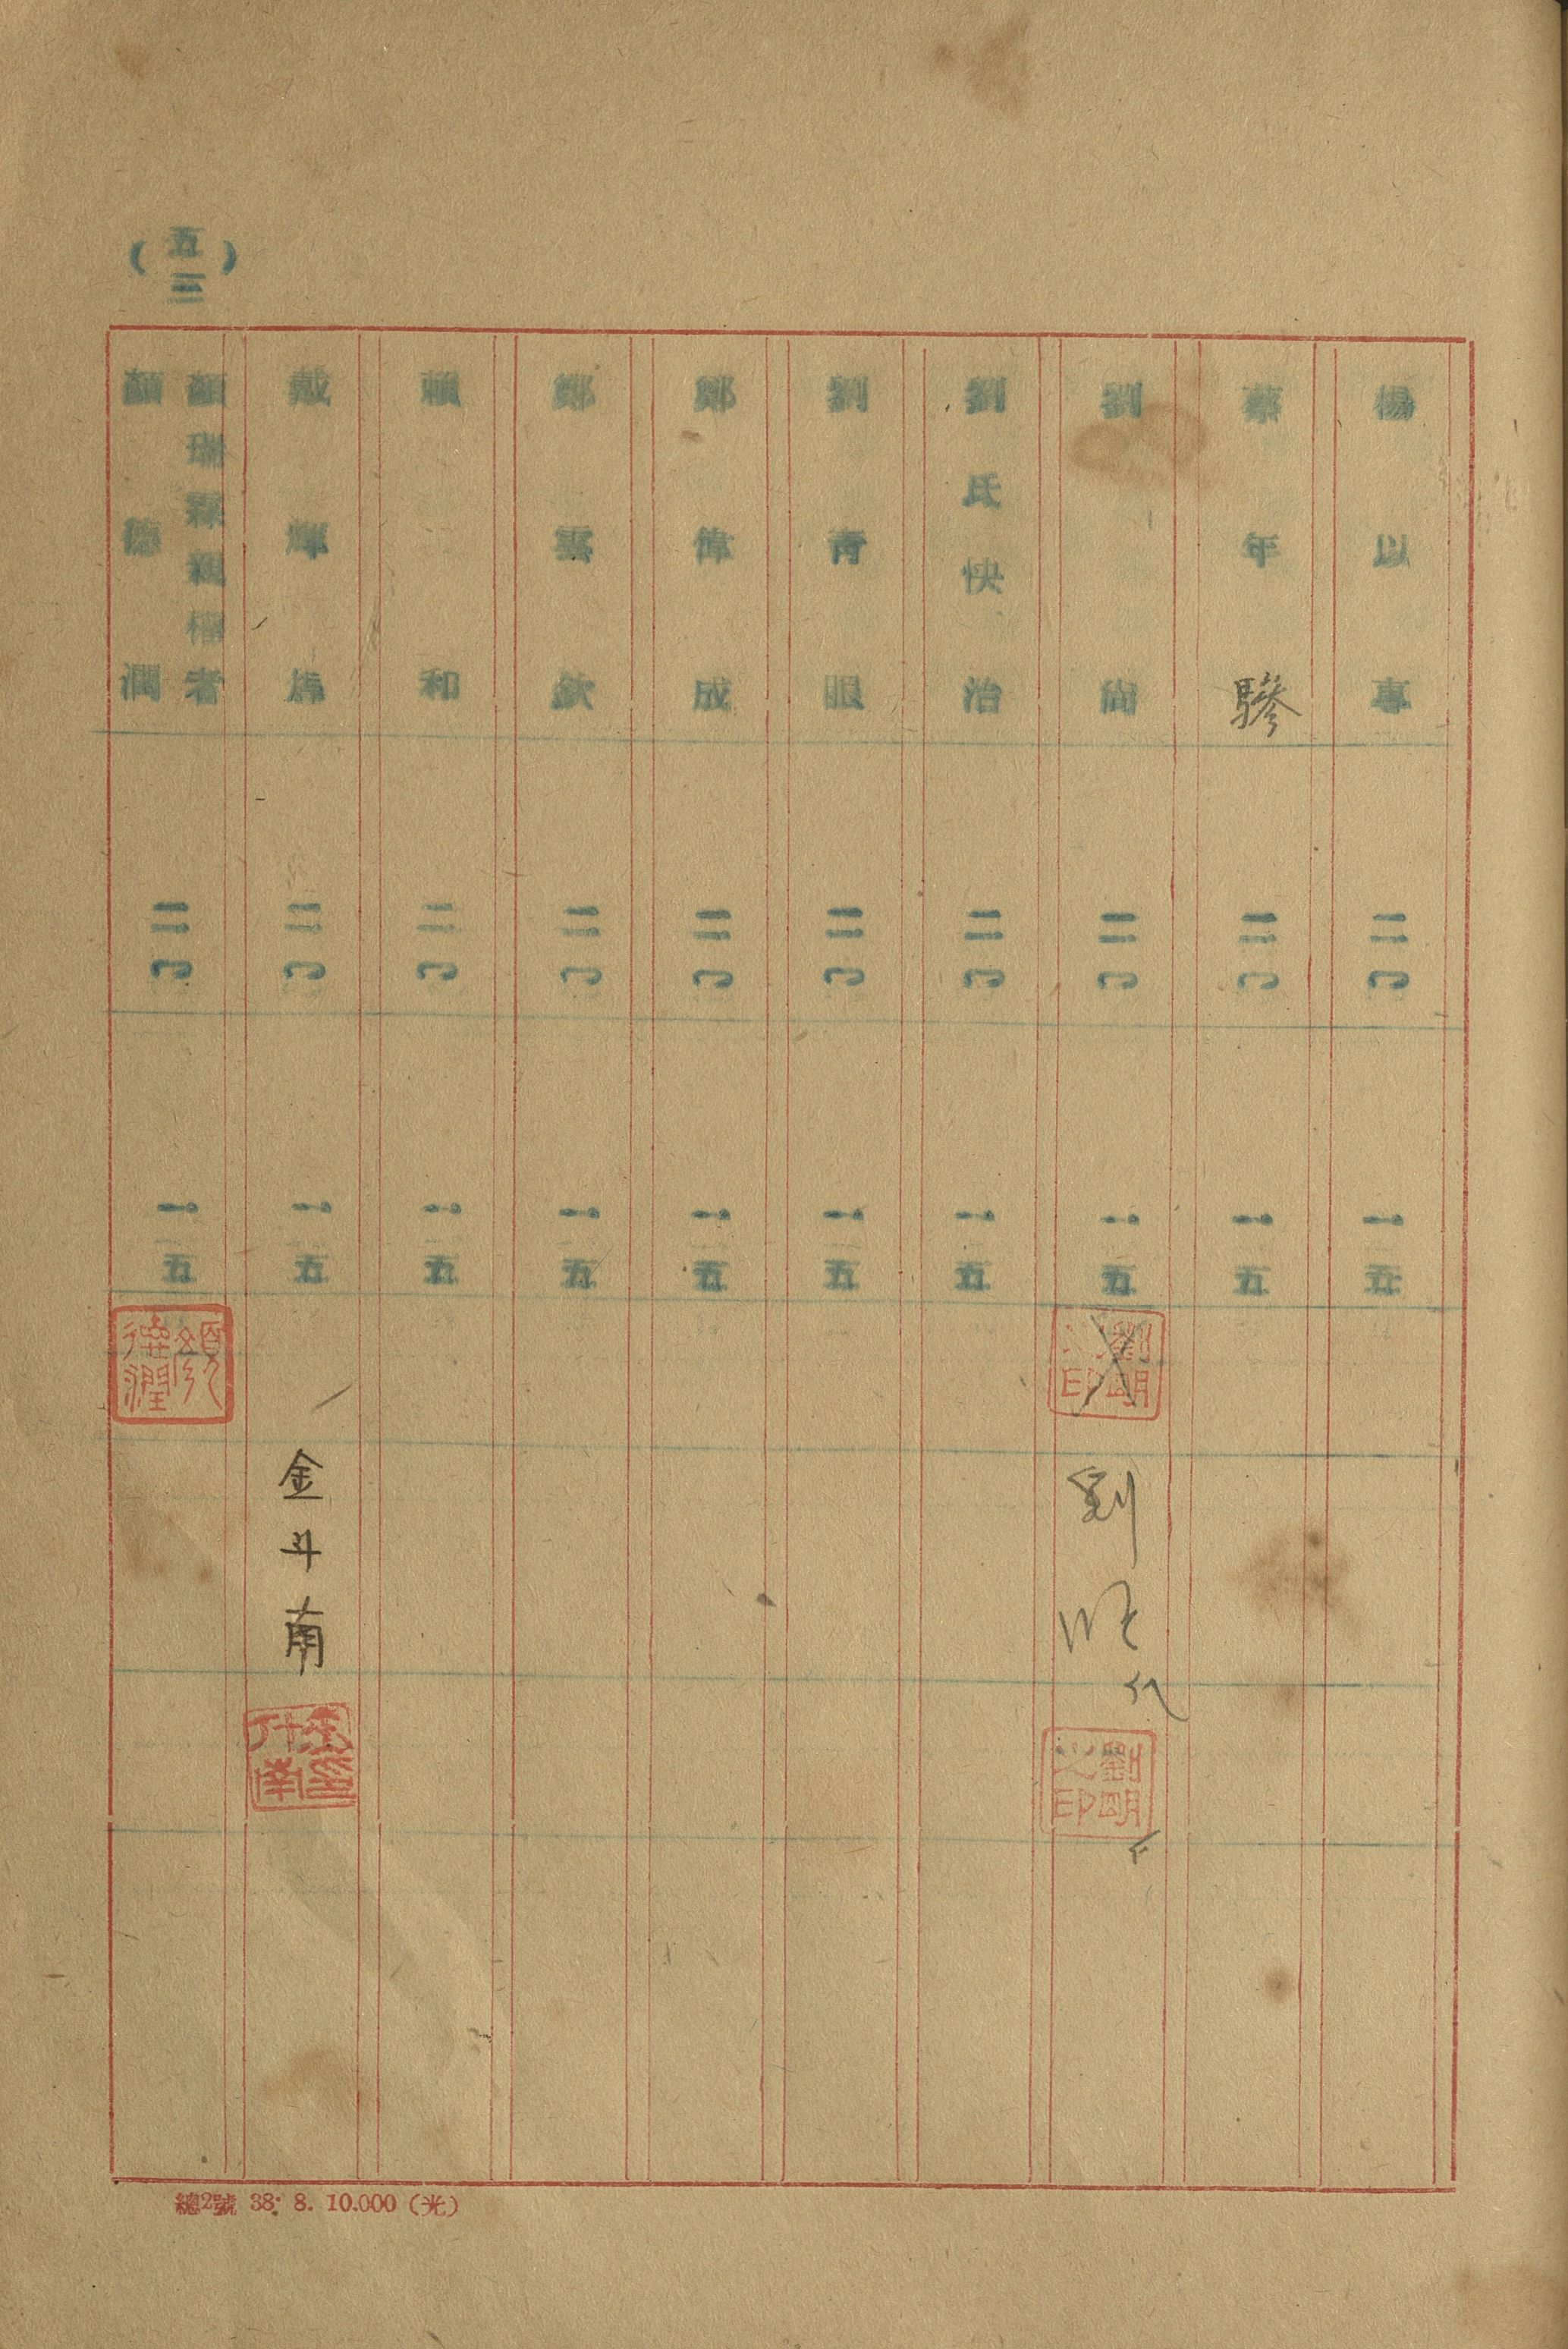 (五三)
楊以專 二〇 一五
蔡年驂 二〇 一五
劉尚 二〇 一五 劉明之印 劉明 劉明之印
劉氏快治 二〇 一五
劉青眼 二〇 一五
鄭偉成 二〇 一五
鄭雲欽 二〇 一五
賴和 二〇 一五
戴輝 二〇 一五 金斗南
顏瑞霖親權者
顏德潤 二〇 一五 顏德潤
總2號 38. 8. 10.000 (光)